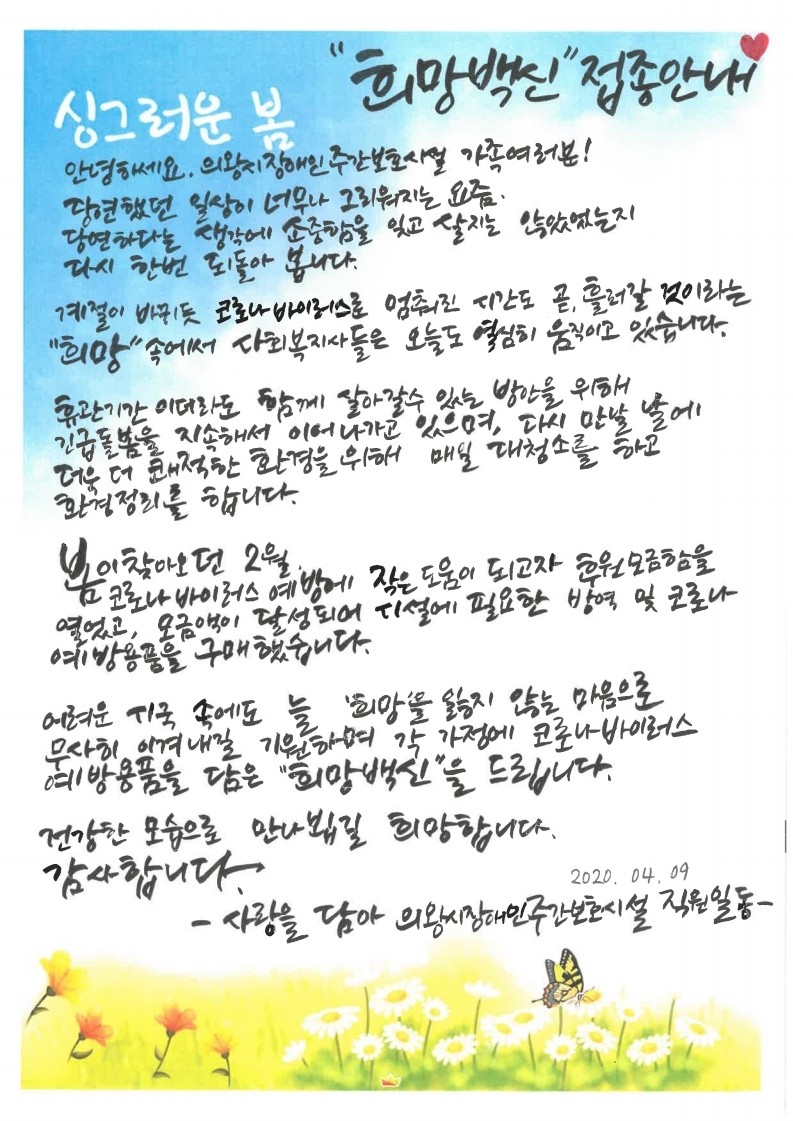 "희망백신" 접종안내
싱그러운 봄
안녕하세요. 의왕시장애인주간보호시설 가족여러분!
당연했던 일상이 너무나 그리워지는 요즘.
당연하다는 생각에 소중함을 잊고 살지는 않았었는지
다시 한번 되돌아 봅니다.
계절이 바뀌듯 코로나바이러스로 멈춰진 시간도 곧, 흘러갈 것이라는
"희망" 속에서 사회복지사들은 오늘도 열심히 움직이고 있습니다.
휴관기간 이더라도 함께 살아갈수 있는 방안을 위해
긴급돌봄을 지속해서 이어나가고 있으며, 다시 만날 날에
더욱 더 쾌적한 환경을 위해 매일 대청소를 하고
환경정리를 합니다.
봄이 찾아오던 2월.
코로나바이러스 예방에 작은 도움이 되고자 후원모금함을
열었고, 모금액이 달성되어 시설에 필요한 방역 및 코로나
예방용품을 구매했습니다.
어려운 시국 속에도 늘 '희망'을 잃지 않는 마음으로
무사히 이겨내길 기원하며 각 가정에 코로나바이러스
예방용품을 담은 "희망백신"을 드립니다.
건강한 모습으로 만나뵙길 희망합니다.
감사합니다.
2020. 04. 09
- 사랑을 담아 의왕시장애인주간보호시설 직원일동 -